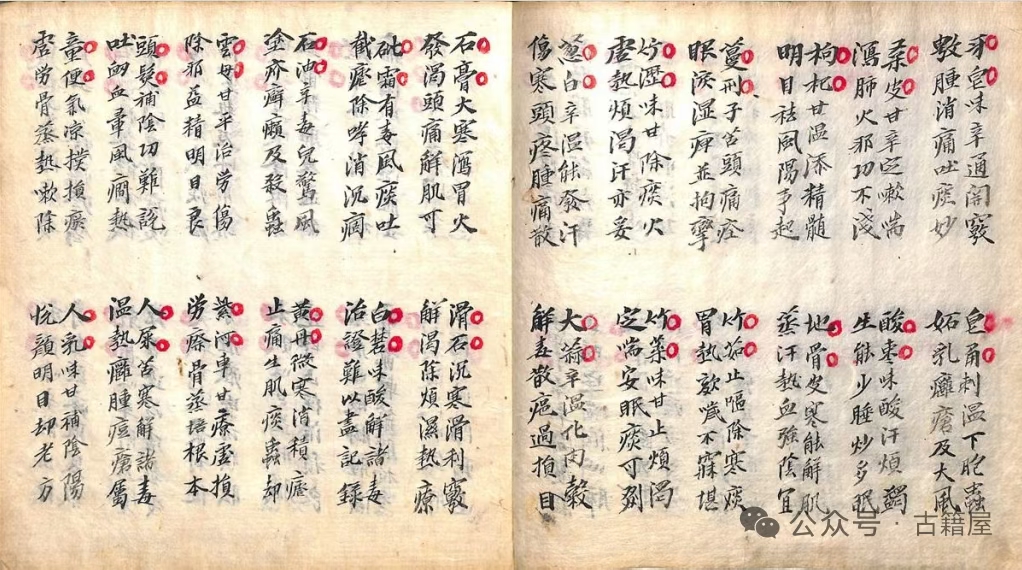 牙皂味辛通關竅
敷腫消痛吐痰妙
皂角刺溫下胞蟲
妬乳癰瘡及大風
桑皮甘辛定嗽喘
瀉肺火邪功不淺
酸棗味酸汗煩蠲
生能少睡炒多眠
枸杞甘溫添精髓
明目祛風陽事起
地骨皮寒能解肌
蒸汗熱血強陰宜
蔓刑子苦頭痛痊
眼淚濕痺並拘攣
竹茹止嘔除寒痰
胃熱欬噦不寐堪
竹瀝味甘除痰火
虛熱煩渴汗亦妥
竹葉味甘止煩渴
定喘安眠痰可劣
蔥白辛溫能發汗
傷寒頭疼腫痛散
大蒜辛溫化肉穀
解毒散癰過損目
石膏大寒瀉胃火
發渴頭痛解肌可
滑石沉寒滑利竅
解渴除煩濕熱療
砒霜有毒風痰吐
截瘧除哮消沉痼
白礬味酸解諸毒
治證難以盡記錄
石油辛毒兒驚風
塗疥癬癩及殺蟲
黃丹微寒消積瘧
止痛生肌痰蟲却
雲母甘平治勞傷
除邪益精明目良
紫河車甘療虛損
勞瘵骨蒸培根本
頭髮補陰功難說
吐衄血暈風癇熱
人尿苦寒解諸毒
溫熱癰腫痘瘡屬
童便氣凉撲損瘀
虛勞骨蒸熱嗽除
人乳味甘補陰陽
悅顏明目却老方
公众号·古籍屋